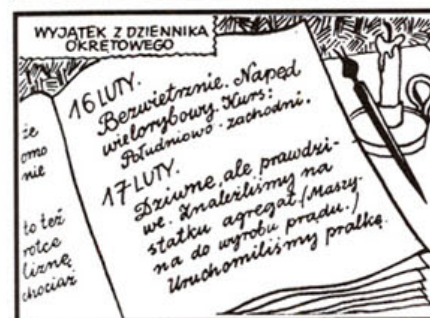 WYJĄTEK Z DZIENNIKA
OKRĘTOWEGO
że
omo
nie
to też
rotce
liznę
chociaż
16 LUTY.
Bezwietrznie. Napęd
wielorybowy. Kurs:
Południowo-zachodni.
17 LUTY.
Dziwne, ale prawdzi-
we. Znaleźliśmy na
statku agregat (Maszy-
na do wyrobu prądu.)
Uruchomiliśmy pralkę.